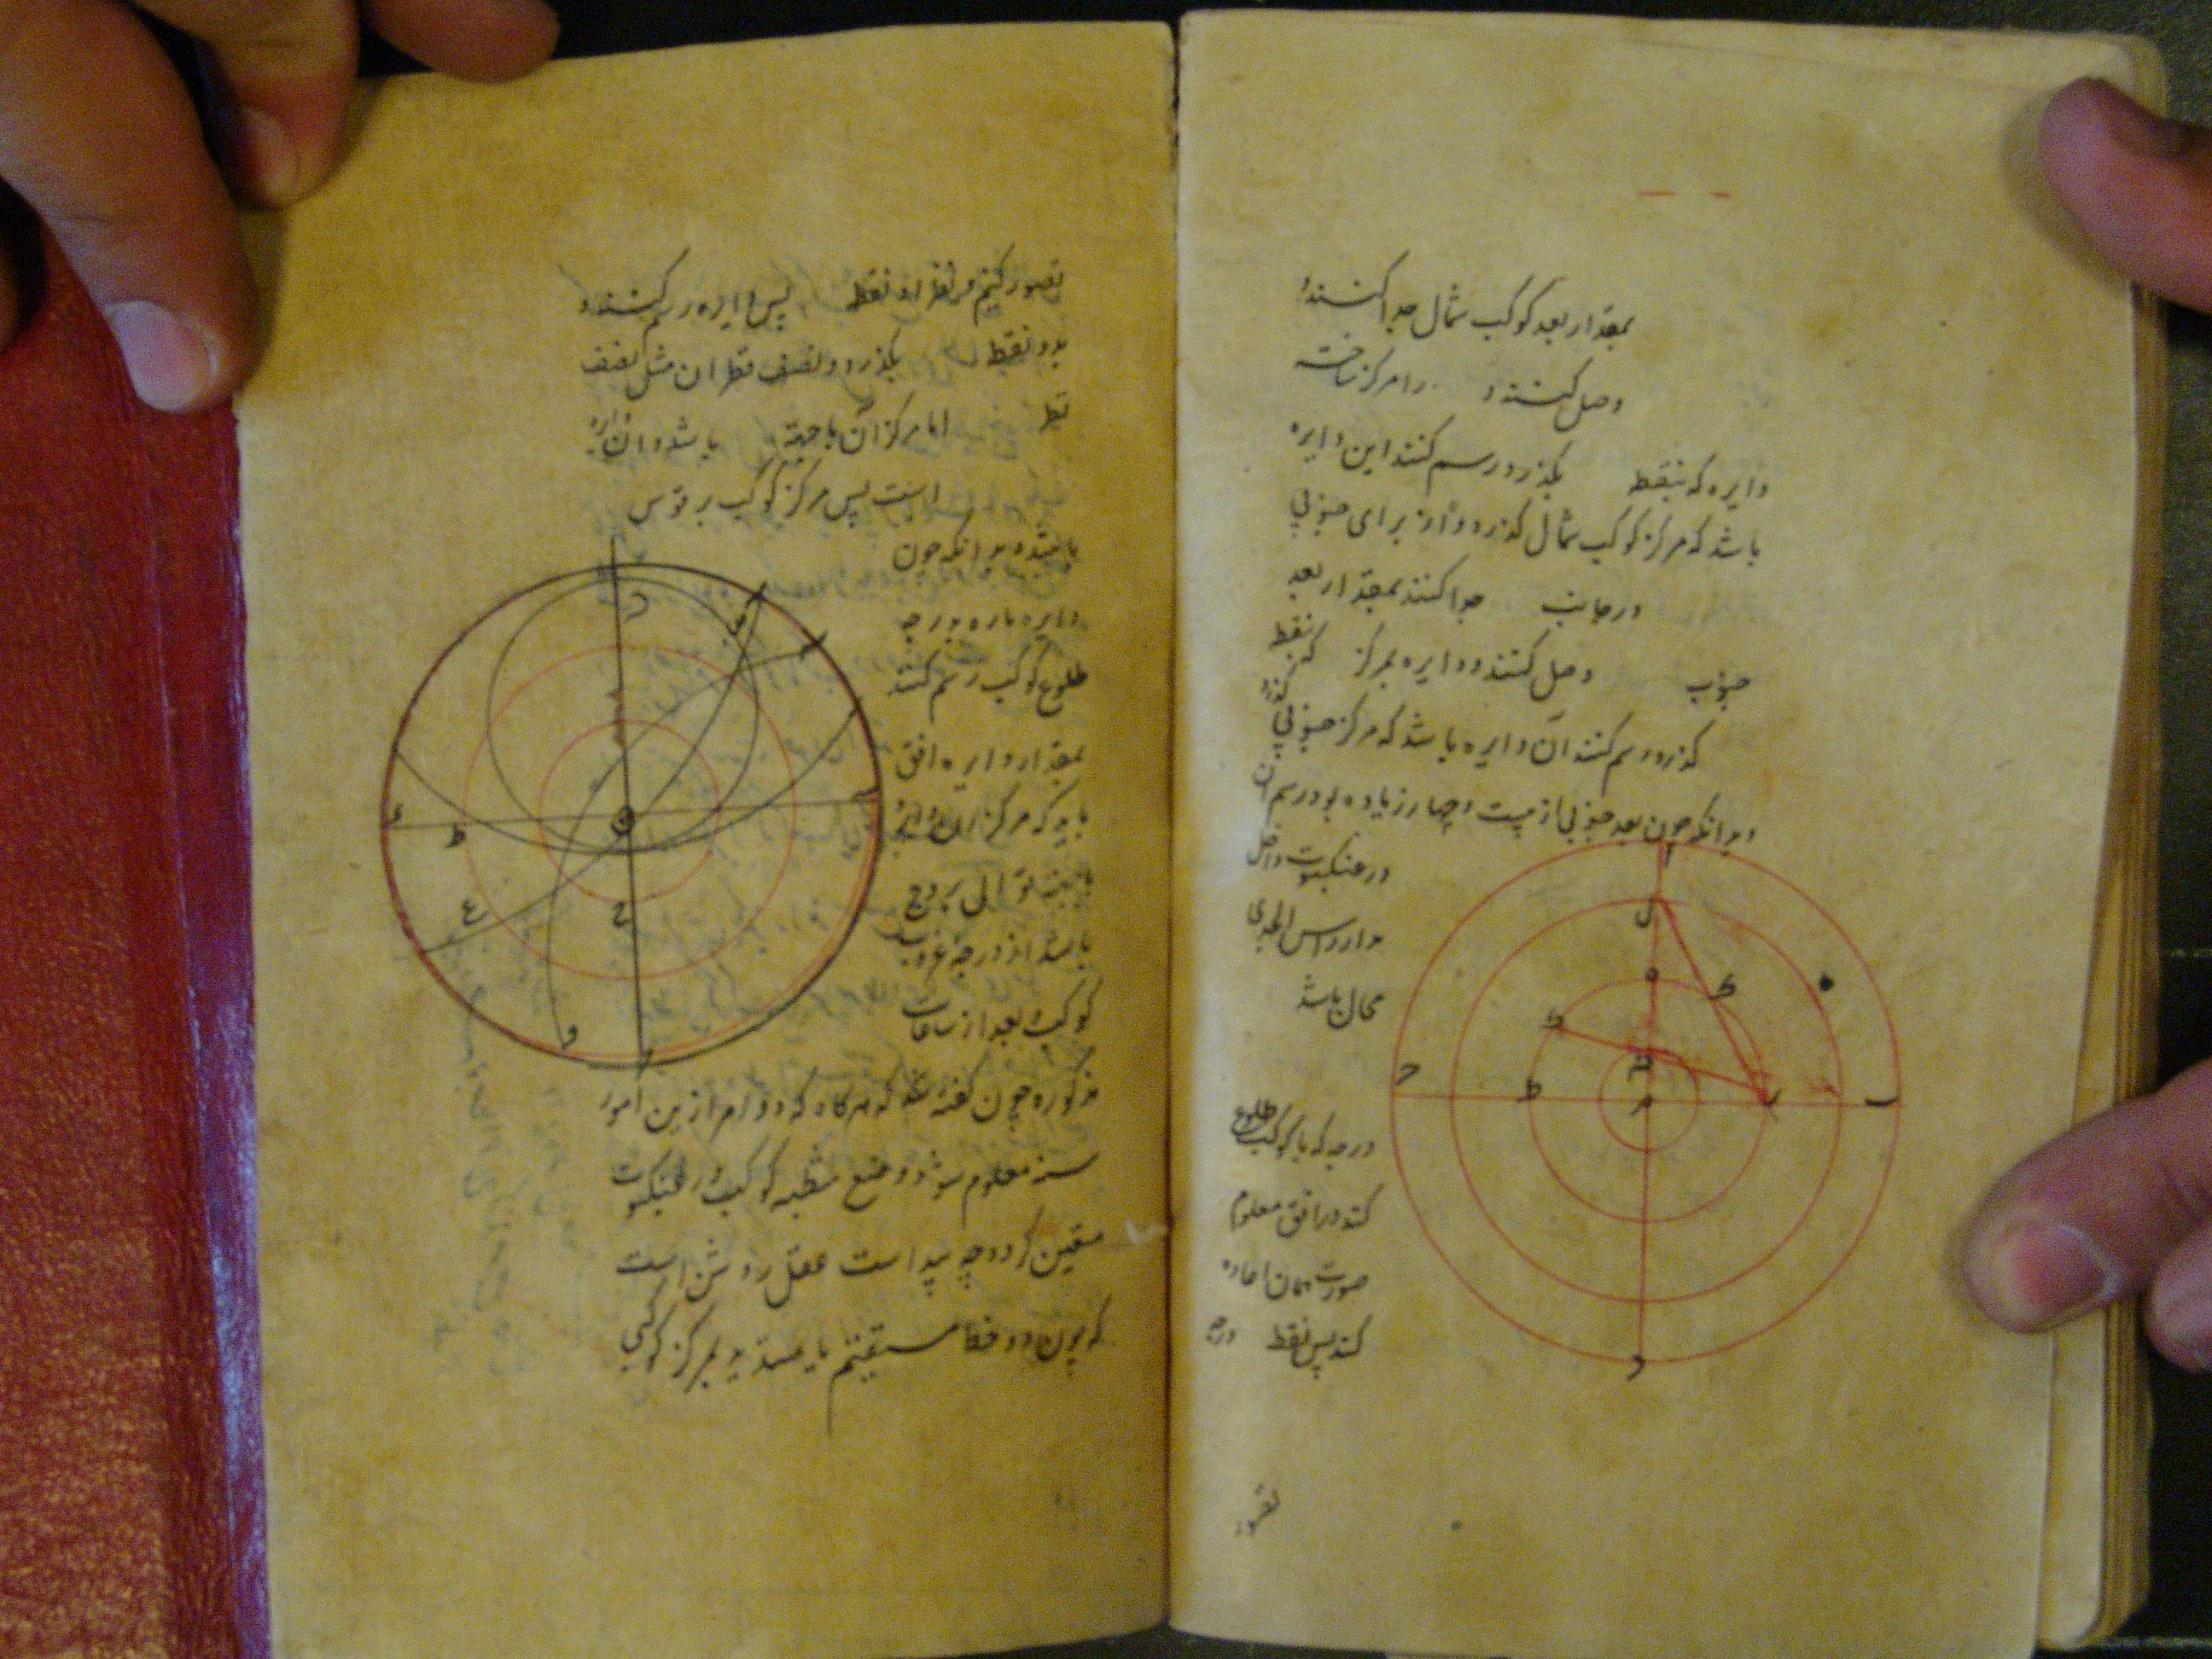 بمقدار بعد کوکب شمال جدا کنند و
وصل کنند و را مرکز ساخته
دایره که بنقط بگذرد رسم کنند این دایره
باشد که مرکز کوکب شمال گذرد و از برای جنوبی
در جانب جدا کنند بمقدار بعد
جنوب وصل کنند و دایره بمرکز که بنقط
گذرد رسم کنند آن دایره باشد که مرکز جنوبی گذرد
و بدانکه چون بعد جنوبی از بیست و چهار زیاده بود رسم آن
در عنکبوت داخل
مدار راس الجدی
محال باشد
درجه که با کوکب طلوع
کند در افق معلوم
صورت همان اعاده
کند پس نقط درجه
تصور
تصور کنیم نقط پس دایره رسم کنند و
بدو نقط بگذرد و نصف قطر آن مثل نصف
قطر اما مرکز آن با جهة باشد و آن دایره
است پس مرکز کوکب بر قوس
باشد و بدانکه چون
دایره ماره بدرجه
طلوع کوکب رسم کنند
بمقدار دایره افق
باید که مرکز آن دایره
توالی بروج
باشد از درجه غروب
کوکب و بعد از ساعات
مذکوره چون گفته شد که هرگاه که دو امر ازین امور
معلوم شود وضع شظیه کوکب در عنکبوت
متعین گردد چه پیداست عقل روشن است
که چون دو خط مستقیم یا مستدیر بمرکز کوکبی